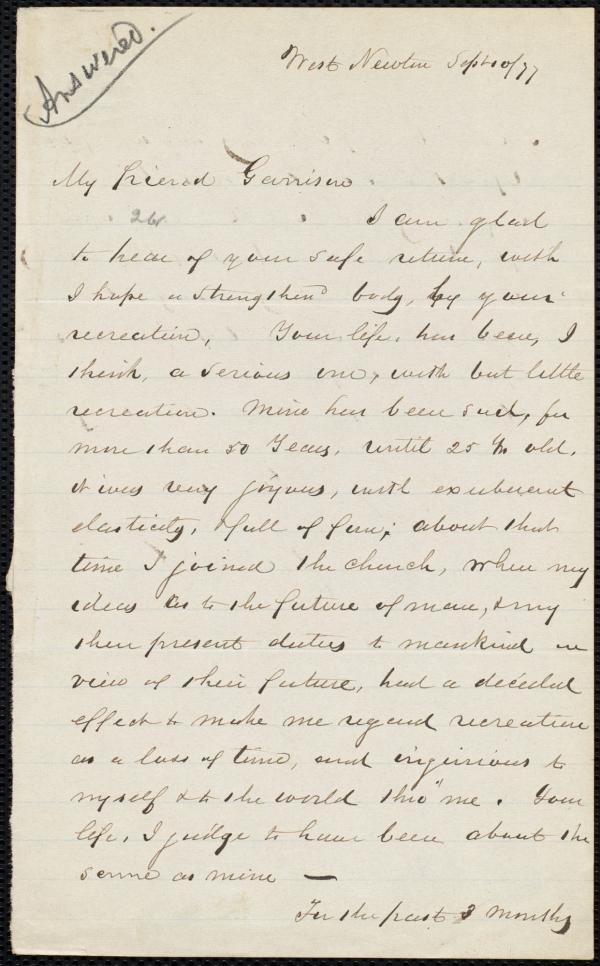 Answered.
West Newton Sept 10/77
My friend Garrison
I am glad
to hear of your safe return, with
I hope a strengthend body, by your
recreation, Your life, has been, I
think, a serious one, with but little
recreation. Mine has been such, for
more than 50 Years. until 25 Ys old,
it was very joyous, with exuberant
elasticity, & full of fun; about that
time I joined the church, when my
ideas as to the future of man, & my
then present duties to mankind in
view of their future, had a decided
effect to make me regard recreation
as a loss of time, and injurious to
myself & to the world thro' me. Your
life, I judge to have been about the
same as mine —
For the past 3 months